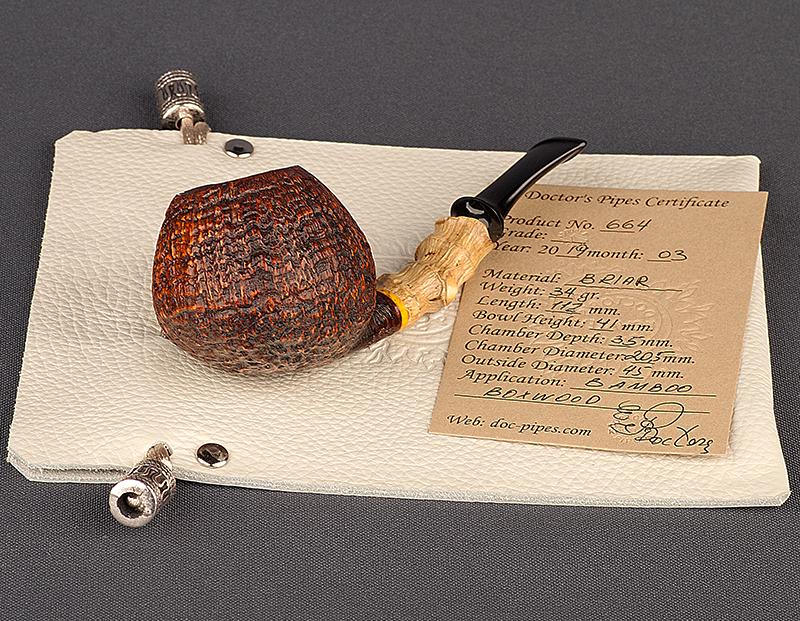 Doctor's Pipes Certificate
Product No. 664
Grade:
Year: 2019 month: 03
Material: BRIAR
Weight: 34 gr.
Length: 112 mm.
Bowl Height: 41 mm.
Chamber Depth: 35 mm.
Chamber Diameter: 20,5 mm.
Outside Diameter: 45 mm.
Application: BAMBOO
BOXWOOD
Web: doc-pipes.com